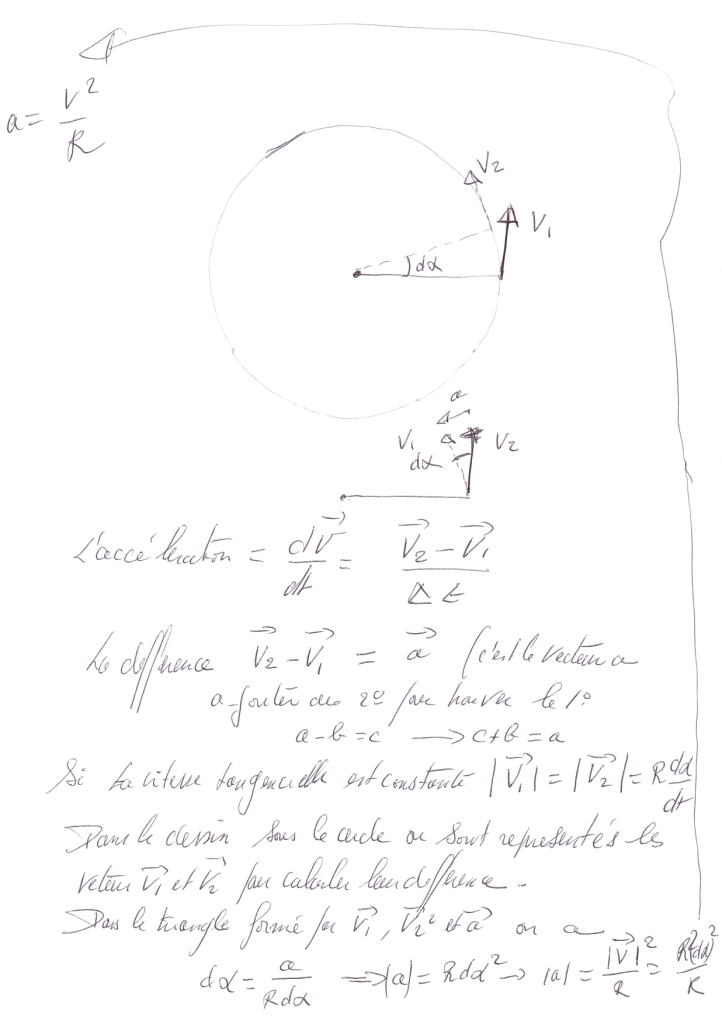 a = V² / R
V₂
V₁
dα
a
V₁ V₂
dα
L'accélération = dV⃗ / dt = V⃗₂ - V⃗₁ / Δt
La différence V⃗₂ - V⃗₁ = a⃗ (c'est le vecteur a
a jouter au 2º pour trouver le 1º
a - b = c → c + b = a
Si la vitesse tangencielle est constante |V⃗₁| = |V⃗₂| = R dα / dt
Dans le dessin sous le cercle on sont représentés les
veteur V⃗₁ et V⃗₂ pour calculer leur différence.
Dans le triangle formé par V⃗₁, V⃗₂ et a⃗ on a
dα = a / R dα ⇒ |a| = R dα² → |a| = |V⃗|² / R = R²(dα)² / R